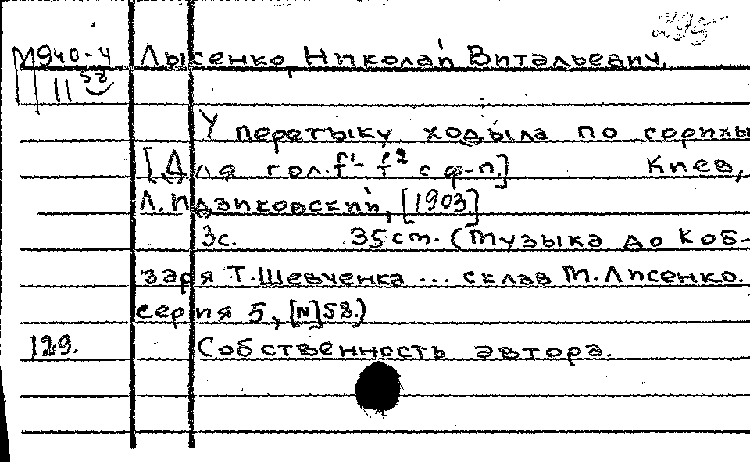 295
М940-4 Лысенко, Николай Витальевич.
11 58
У перетыку ходыла по горихы
[Для гол. f¹-f² с ф-п.] Киев,
Л. Идзиковский, [1903]
3с. 35 cm. (Музыка до Коб-
заря Т. Шевченка ... склав М. Лисенко.
серия 5, [N] 58.)
129. Собственность автора.